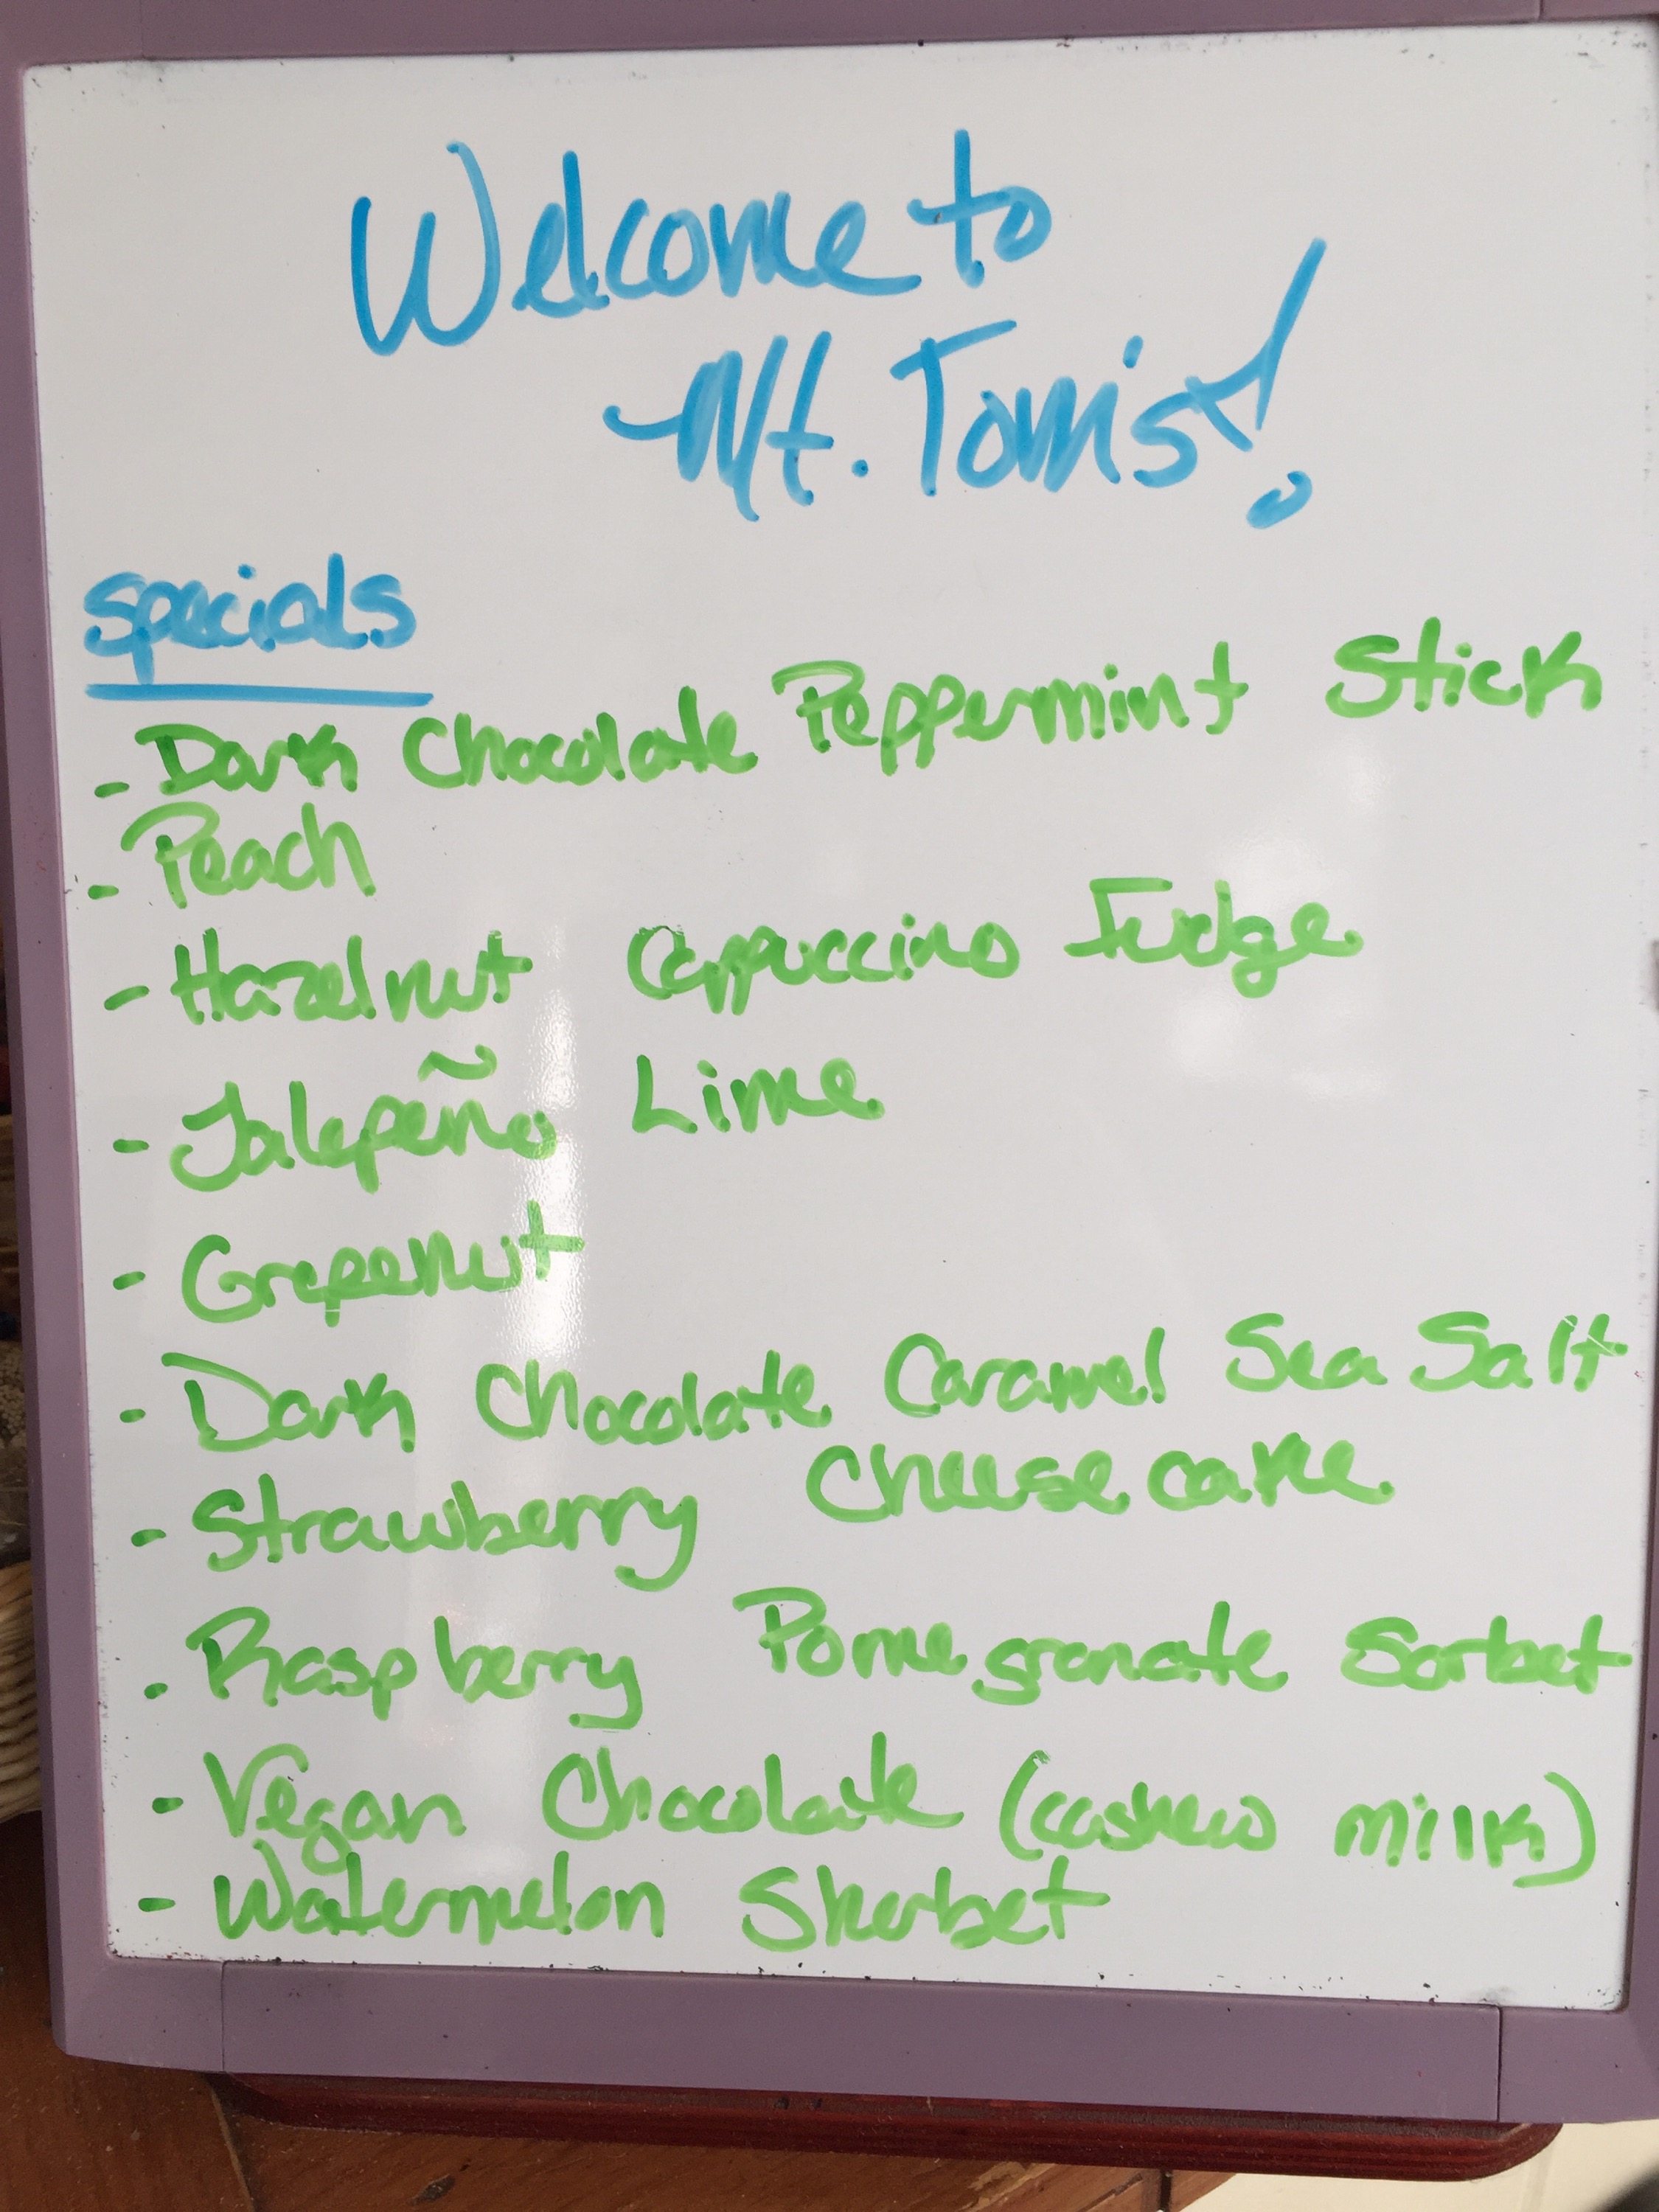 Welcome to
Mt. Tom's!
specials
- Dark Chocolate Peppermint Stick
- Peach
- Hazelnut Cappuccino Fudge
- Jalepeño Lime
- Grapenut
- Dark Chocolate Caramel Sea Salt
- Strawberry Cheesecake
- Raspberry Pomegranate Sorbet
- Vegan Chocolate (cashew milk)
- Watermelon Sherbet